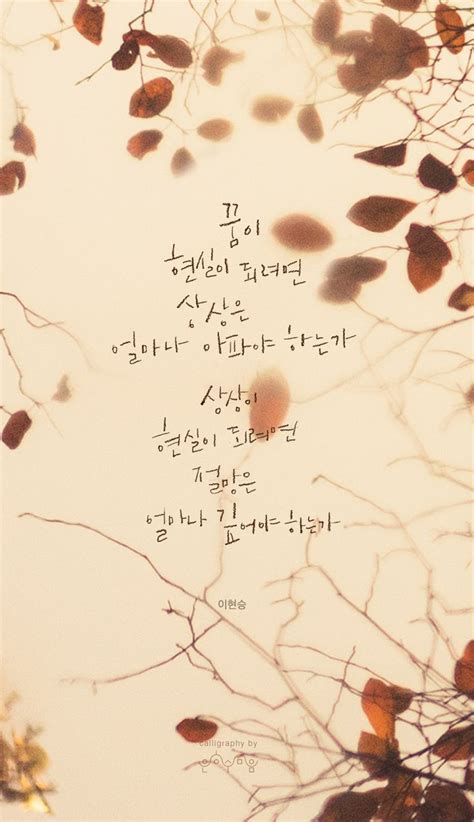 꿈이
현실이 되려면
상상은
얼마나 아파야 하는가
상상이
현실이 되려면
절망은
얼마나 깊어야 하는가
이현승
calligraphy by